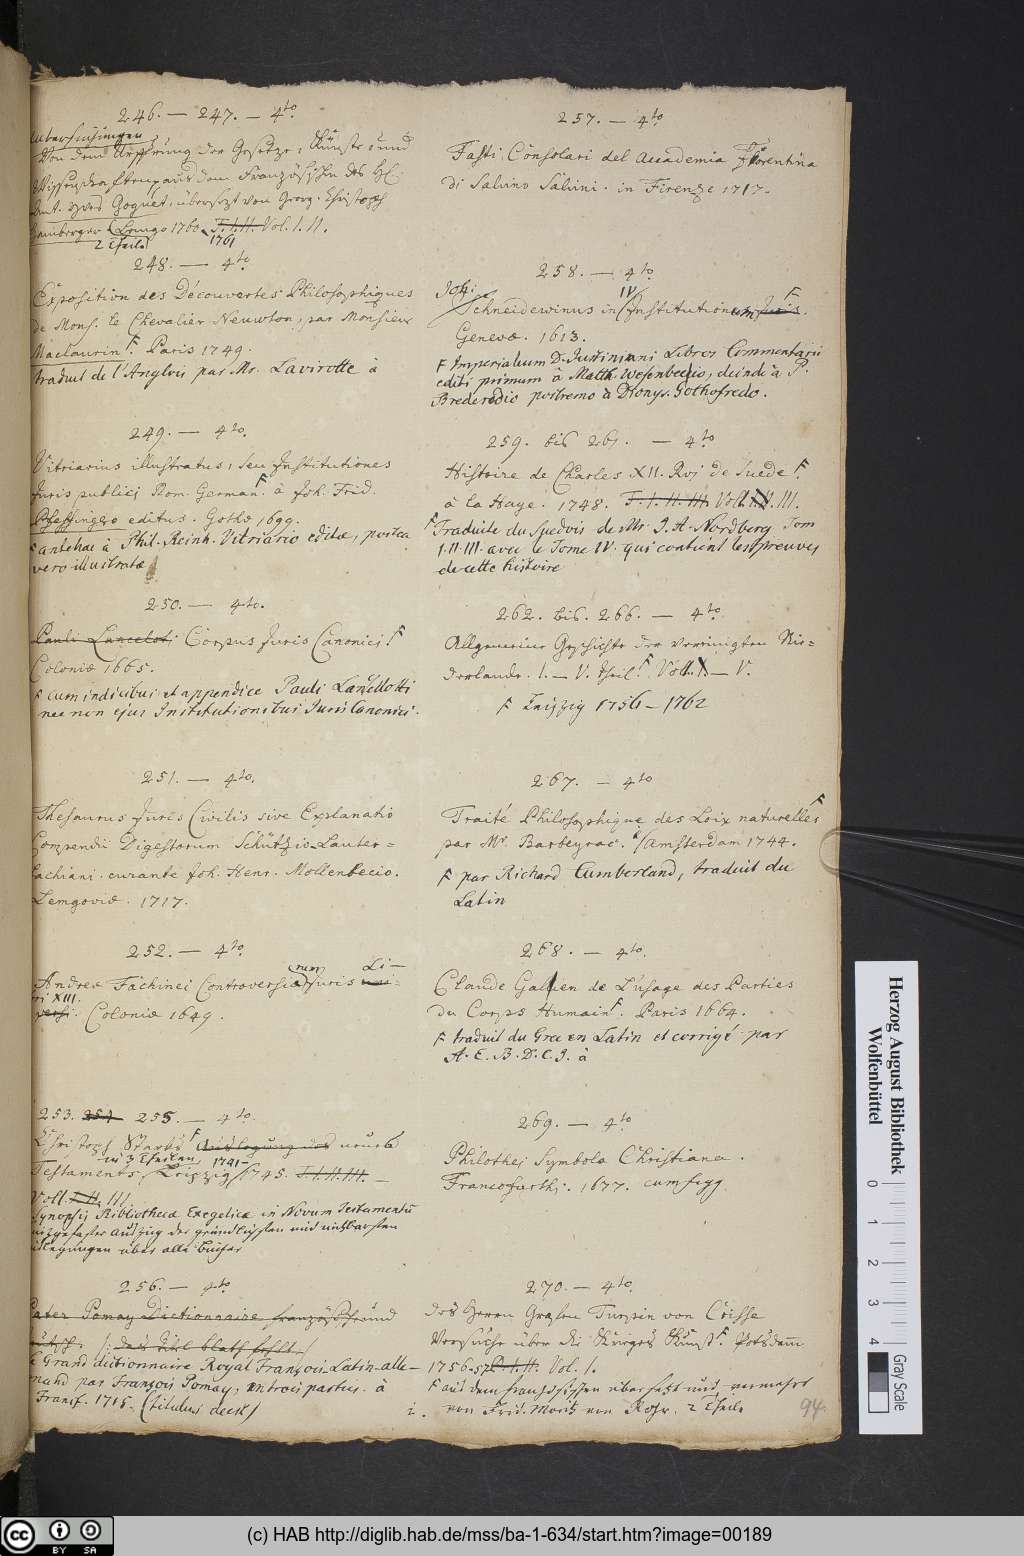 246. — 247. — 4to.
Untersuchungen
Von dem Ursprung der Gesetze, Künste und
Wissenschaften, aus dem Französischen des H.
Ant. Yves Goguet, übersetzt von Georg Christoph
Hamberger Lemgo 1760. T. I. II. Vol. I. II.
2 Theile 1761
248. — 4to.
Exposition des Découvertes Philosophiques
de Mons. le Chevalier Neuwton, par Monsieur
Maclaurin F. Paris 1749.
traduit de l'Anglois par Mr. Lavirotte à
249. — 4to.
Vitriarius illustratus, seu Institutiones
Juris publici Rom. German. F à Joh. Frid.
Pfeffingero editus. Gothæ 1699.
F antehac à Phil. Reinh. Vitriario editæ, postea
vero illustratæ
250. — 4to.
Pauli Lanceloti Corpus Juris Canonici. F
Coloniæ 1665.
F cum indicibus et appendice Pauli Lancellotti
nec non ejus Institutionibus Juris Canonici.
251. — 4to.
Thesaurus Juris Civilis sive Explanatio
Compendii Digestorum Schützio-Lauter=
bachiani. curante Joh. Henr. Mollenbecio.
Lemgoviæ. 1717.
252. — 4to.
Andreæ Fachinei Controversiarum Juris Li—
bri XIII.
versi. Coloniæ 1649.
253. 254 255. — 4to.
Christoph Starks F Auslegung des neuen
in 3 Theilen 1741–
Testaments, Leipzig 1745. T. I. II. III. —
Voll. I. II. III.
Synopsis Bibliothecæ Exegeticæ in Novum Testamentum
kurzgefaßter Auszug der gründlichsten und nutzbarsten
Auslegungen über alle Bücher
256. — 4to.
Pater Pomay Dictionnaire französisch und
deutsch. /: das Titel blatt fehlt. :/
le Grand dictionnaire Royal François-Latin-alle—
mand par François Pomay, en trois parties. à
Francf. 1715. (titulus deest)
257. — 4to.
Fasti Consolari del Accademia Fiorentina
di Salvino Salvini. in Firenze 1717.
258. — 4to.
Joh: IV F
Schneidewinus in Institutionum Juris.
Genevæ. 1613.
F Imperialium D. Justiniani Libros Commentarii
editi primum à Matth. Wesenbecio, deinde à P.
Brederodio postremo à Dionys. Gothofredo.
259. bis 261. — 4to.
Histoire de Charles XII. Roi de Suede F.
à la Haye. 1748. T. I. II. III. Voll. I. II. III.
F Traduite du Suedois de Mr. J. A. Nordberg Tom
I. II. III. avec le Tome IV. qui contient les preuves
de cette histoire
262. bis. 266. — 4to.
Allgemeine Geschichte der vereinigten Nie=
derlande. I. — V. Theil. F Voll. I. — V.
F Leipzig 1756 – 1762
267. — 4to
Traité Philosophique des Loix naturelles F
par Mr. Barbeyrac. à Amsterdam 1744.
F par Richard Cumberland, traduit du
Latin
268. — 4to.
Claude Galien de L'usage des Parties
du Corps Humain F. Paris 1664.
F traduit du Grec en Latin et corrigé par
A. E. B. D. C. J. à
269. — 4to.
Philothei Symbola Christiana.
Francofurthi. 1677. cum figg.
270. — 4to.
des Herrn Grafen Turpin von Crisse
Versuche über die Krieges Kunst F. Potsdam
1756-57 T. I. II. Vol. I.
F aus dem französischen übersetzt und vermehrt
von Frid. Moritz von Rohr. 2 Theile
94.
Herzog August Bibliothek
Wolfenbüttel
0 1 2 3 4
Gray Scale
cc BY SA
(c) HAB http://diglib.hab.de/mss/ba-1-634/start.htm?image=00189